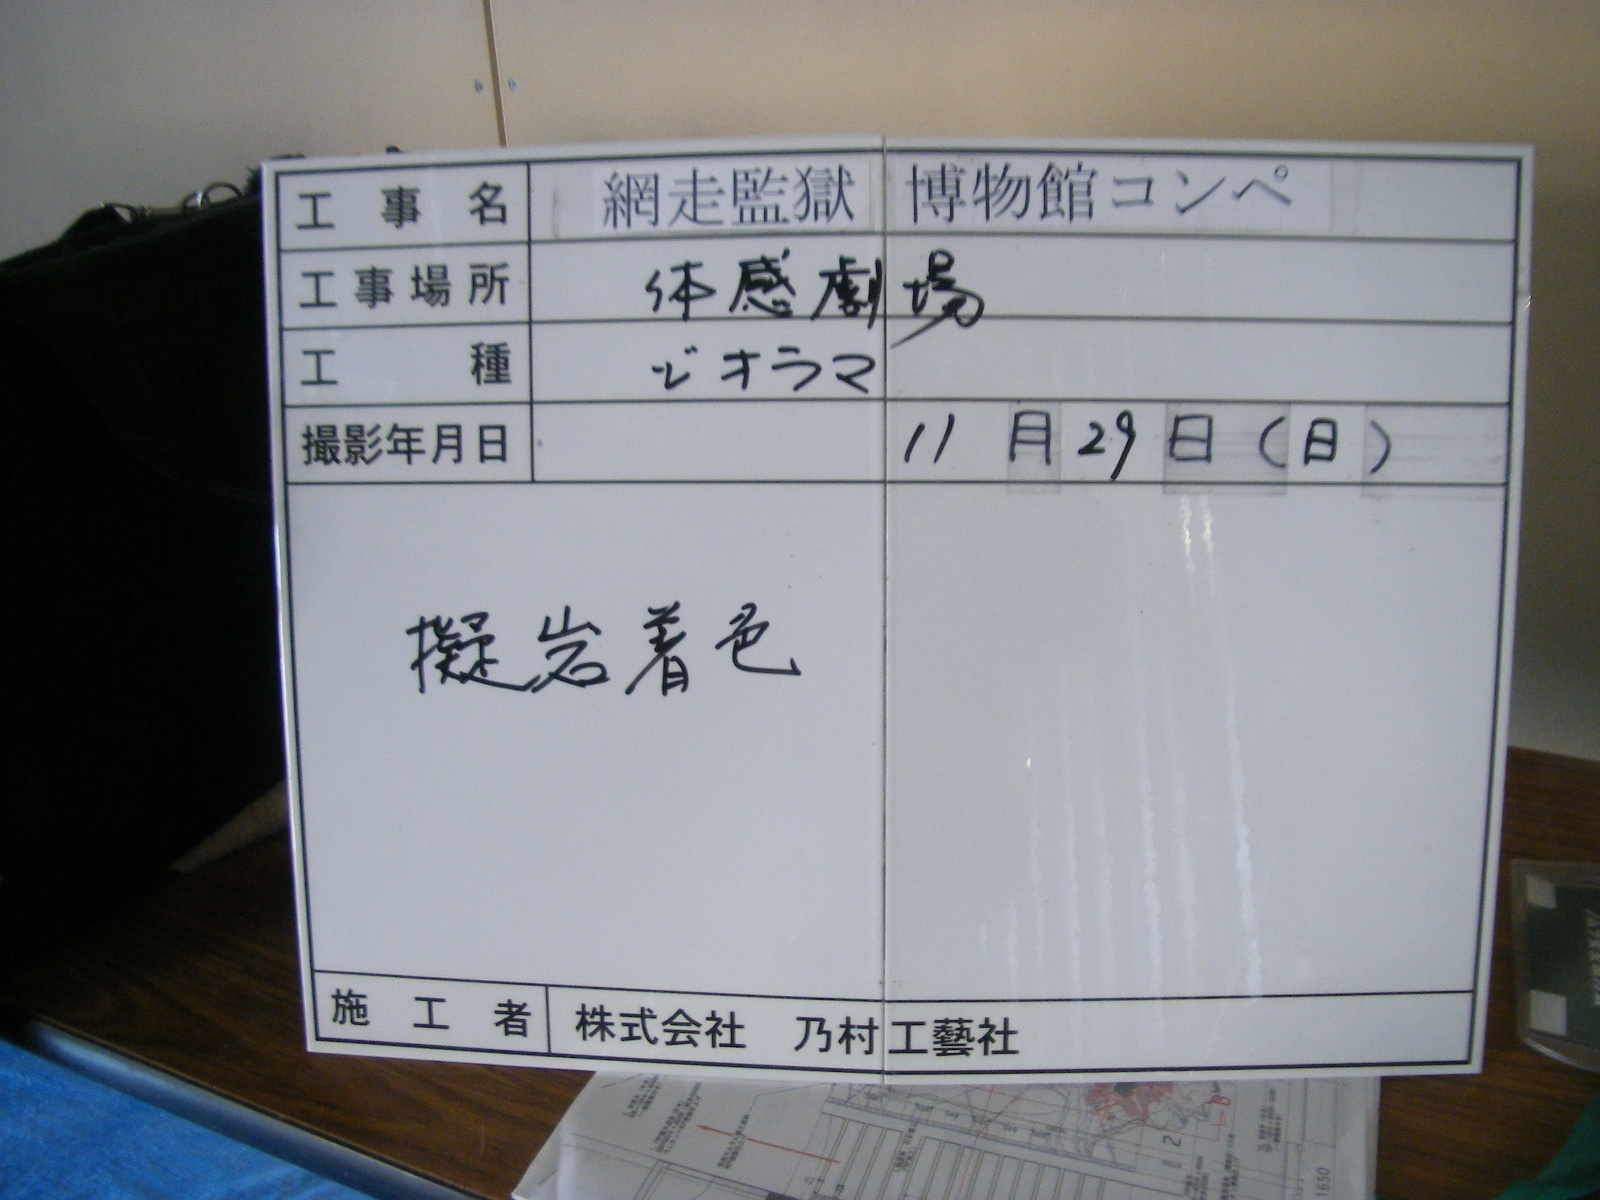 工事名 網走監獄 博物館コンペ
工事場所 体感劇場
工種 ジオラマ
撮影年月日 11月29日(日)
擬岩着色
施工者 株式会社 乃村工藝社
2
B
1650